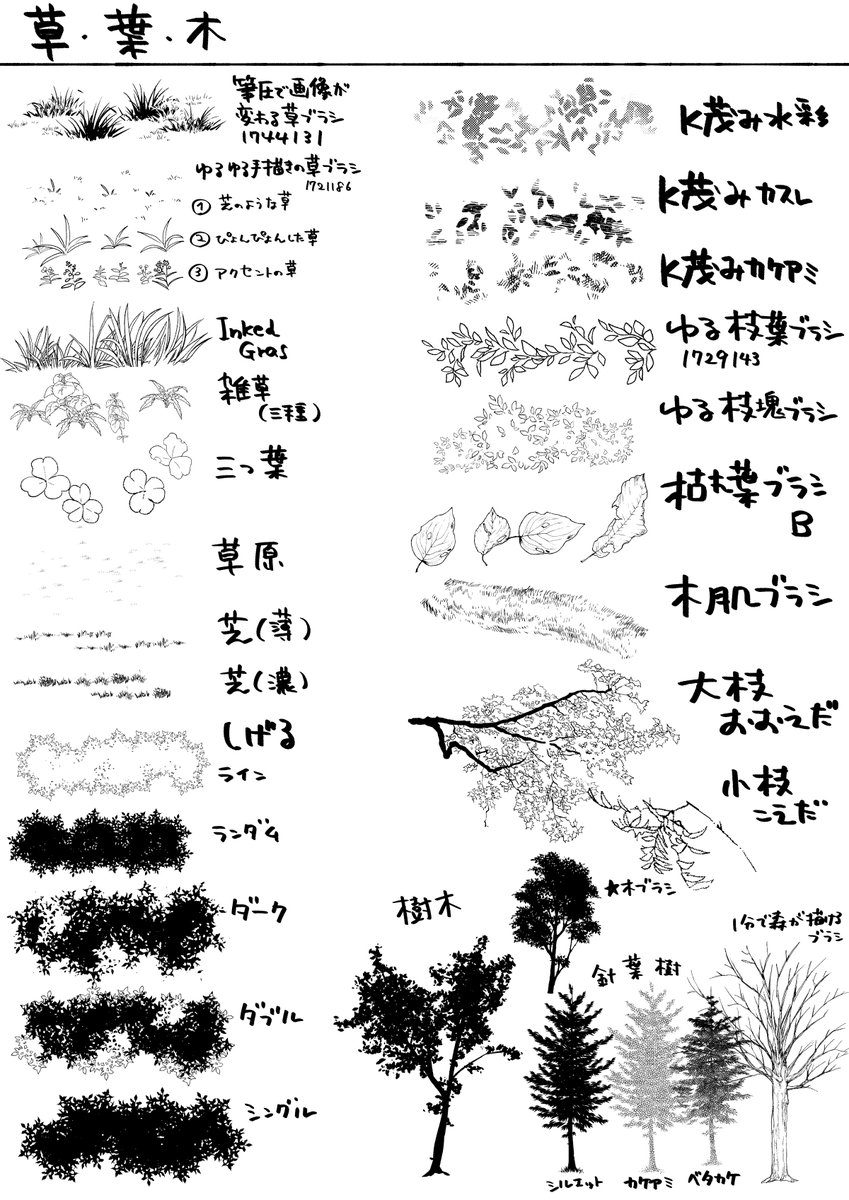 草・葉・木
筆圧で画像が
変わる草ブラシ
1744131
ゆるゆる手描きの草ブラシ
1721186
① 芝のような草
② ぴょんぴょんした草
③ アクセントの草
Inked
Gras
雑草
(三種)
三つ葉
草原
芝(薄)
芝(濃)
しげる
ライン
ランダム
ダーク
ダブル
シングル
K茂み水彩
K茂みカスレ
K茂みカケアミ
ゆる枝葉ブラシ
1729143
ゆる枝塊ブラシ
枯れ葉ブラシ
B
木肌ブラシ
大枝
おおえだ
小枝
こえだ
樹木
☆木ブラシ
針葉樹
シルエット
カケアミ
ベタカケ
1分で森が描ける
ブラシ